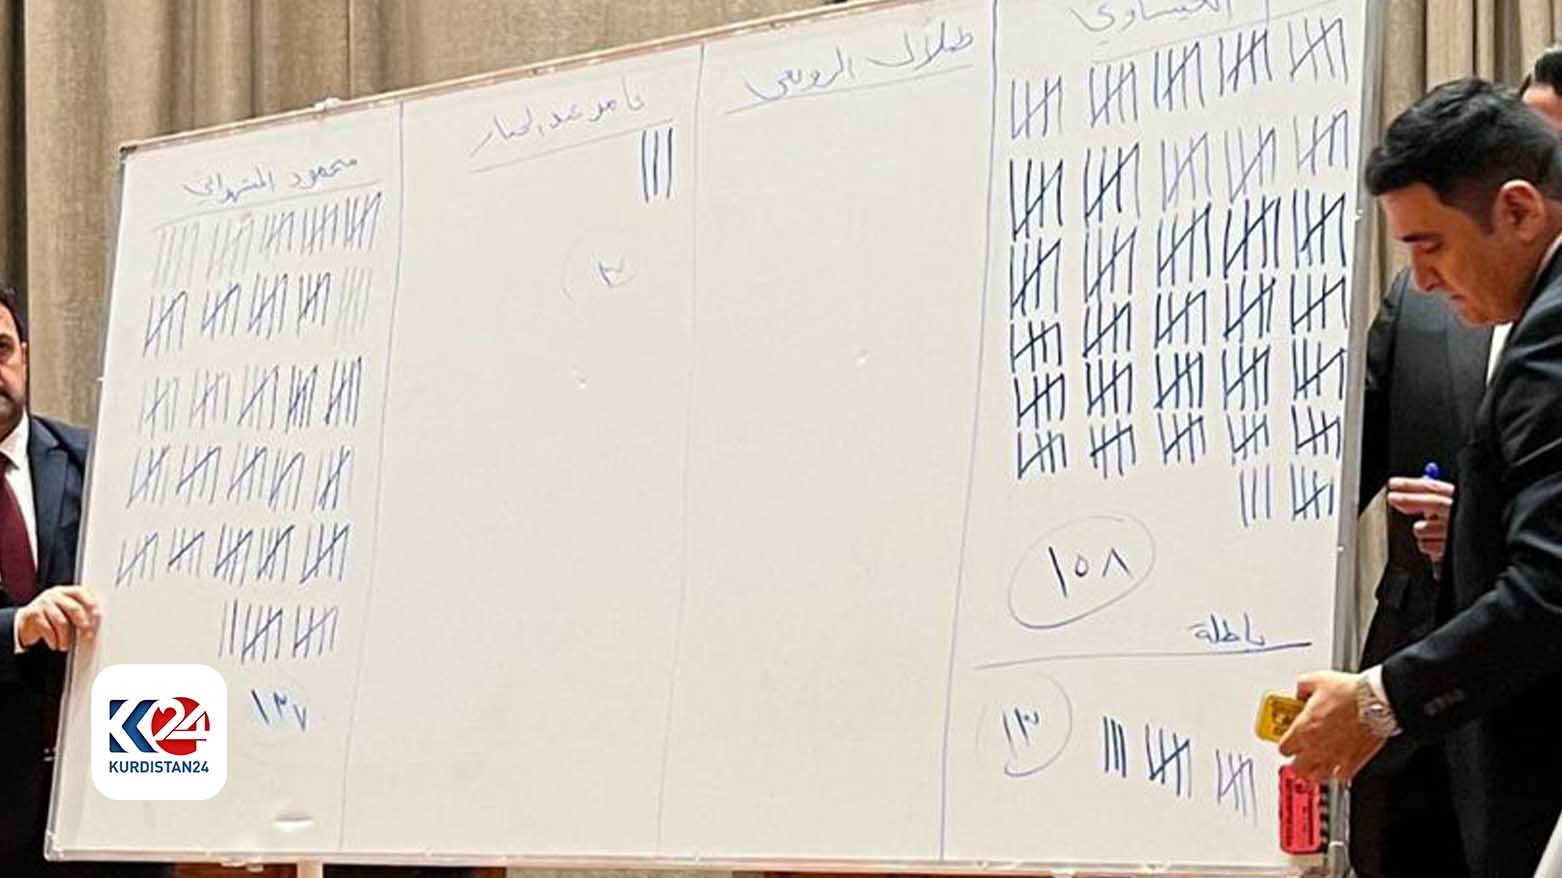 العيساوي
طلال الزوبعي
عامر عبد الجبار
محمود المشهداني
٣
١٥٨
باطلة
١٣
١٣٧
K24
KURDISTAN24